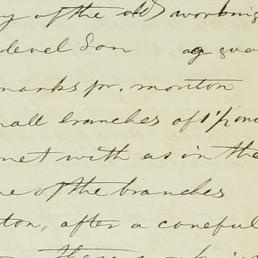 y of the old working
level Son
marks pr. morton
mall branches of
met with as in the
e of the branches
ton, after a careful